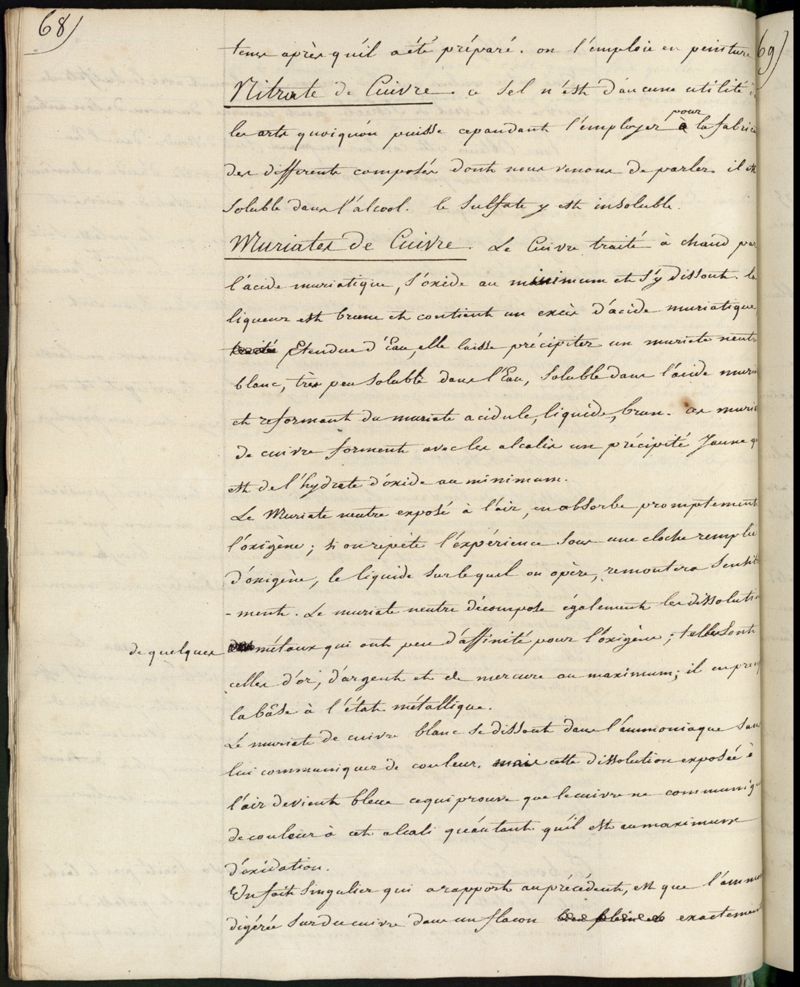 68)
69)
tems après qu'il a été préparé. on l'emploie en peinture
Nitrate de Cuivre. ce sel n'est d'aucune utilité
les arts quoiqu'on puisse cependant l'employer à pour la fabric
des differents composés dont nous venons de parler. il est
soluble dans l'alcool. le sulfate y est insoluble.
Muriates de Cuivre. Le Cuivre traité à chaud par
l'acide muriatique, s'oxide au minimum et s'y dissout. la
liqueur est brune et contient un excès d'acide muriatique
Etendue d'Eau, elle laisse précipiter un muriate neutre
blanc, très peu soluble dans l'Eau, soluble dans l'acide muria
et reformant du muriate acidule, liquide, brun. ces muria
de cuivre forment avec les alcalis un précipité Jaune q
est de l'hydrate d'oxide au minimum.
Le Muriate neutre exposé à l'air, en absorbe promptement
l'oxigène; si on repète l'expérience sous une cloche remplie
d'oxigène, le liquide sur lequel on opère, remontera sensib
-ment. Le muriate neutre décompose également les dissolutio
de quelques métaux qui ont peu d'affinité pour l'oxigène; telles sont
celles d'or, d'argent et de mercure au maximum; il en préci
la base à l'état métallique.
Le muriate de cuivre blanc se dissout dans l'ammoniaque sans
lui communiquer de couleur. mais cette dissolution exposée à
l'air devient bleue ce qui prouve que le cuivre ne communiqu
de couleur à cet alcali qu'autant qu'il est au maximum
d'oxidation.
Un fait singulier qui a rapport au précédent, est que l'ammo
digérée sur du cuivre dans un flacon exactement